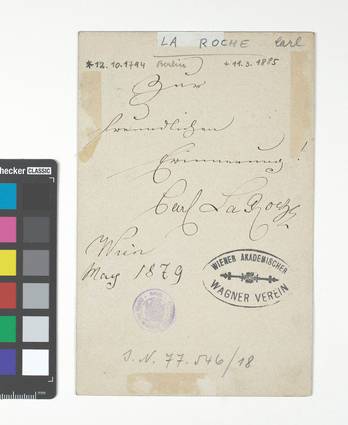 LA ROCHE Carl
*12.10.1794 Berlin +11.3.1885
Zur
freundlichen
Erinnerung!
Carl La Roche
Wien
May 1879
WIENER AKADEMISCHER
WAGNER VEREIN
S.N. 77.546/18
checker CLASSIC
mm